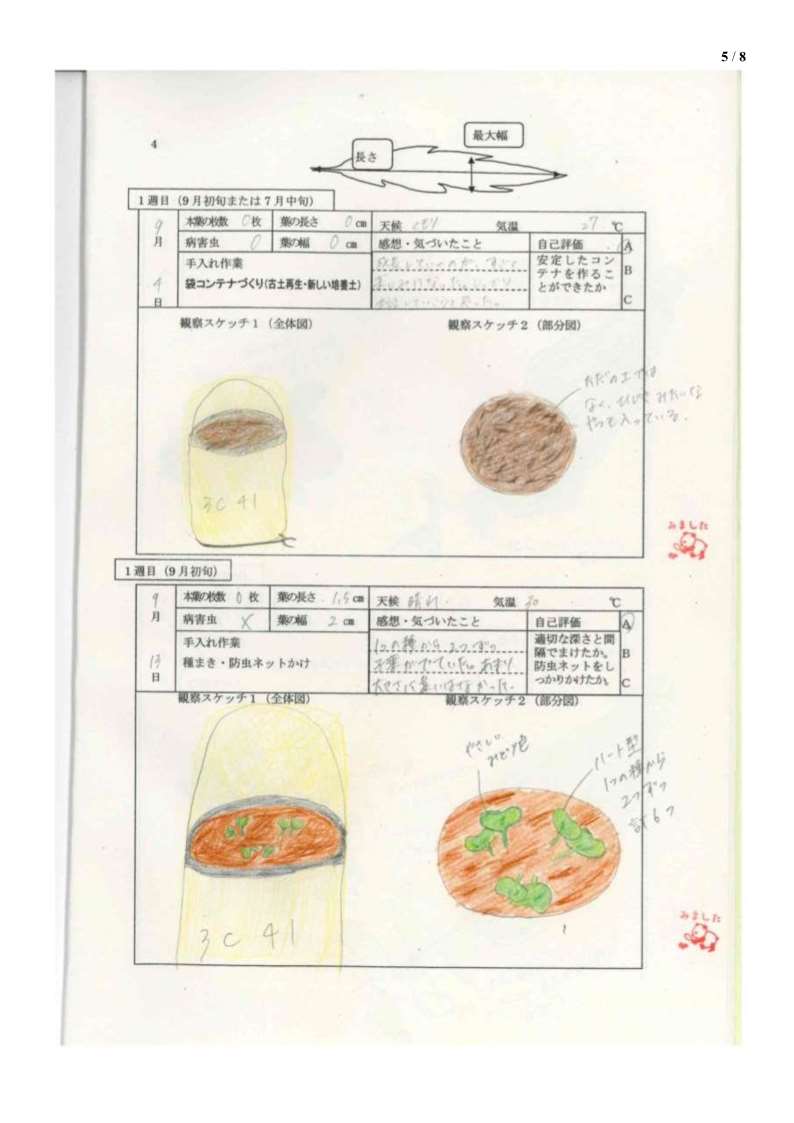 5 / 8
4
最大幅
長さ
1週目（9月初旬または7月中旬）
9月4日
本葉の枚数 0枚 葉の長さ 0cm
病害虫 0 葉の幅 0cm
手入れ作業
袋コンテナづくり(古土再生・新しい培養土)
天候 くもり 気温 27℃
感想・気づいたこと
自己評価
安定したコン
テナを作るこ
とができたか
A
B
C
観察スケッチ1（全体図）
観察スケッチ2（部分図）
3C 41
ただの土では
なく、 みたいな
やつも入っている。
みました
1週目（9月初旬）
9月13日
本葉の枚数 0枚 葉の長さ 1.5cm
病害虫 × 葉の幅 2cm
手入れ作業
種まき・防虫ネットかけ
天候 晴れ 気温 30℃
感想・気づいたこと
1つの種から2つずつ
葉がでていた。あまり
大きさに違いはなかった。
自己評価
適切な深さと間
隔でまけたか。
防虫ネットをし
っかりかけたか。
A
B
C
観察スケッチ1（全体図）
観察スケッチ2（部分図）
3C 41
やさしい
みどり色
ハート型
1つの種から
2つずつ
計6つ
みました